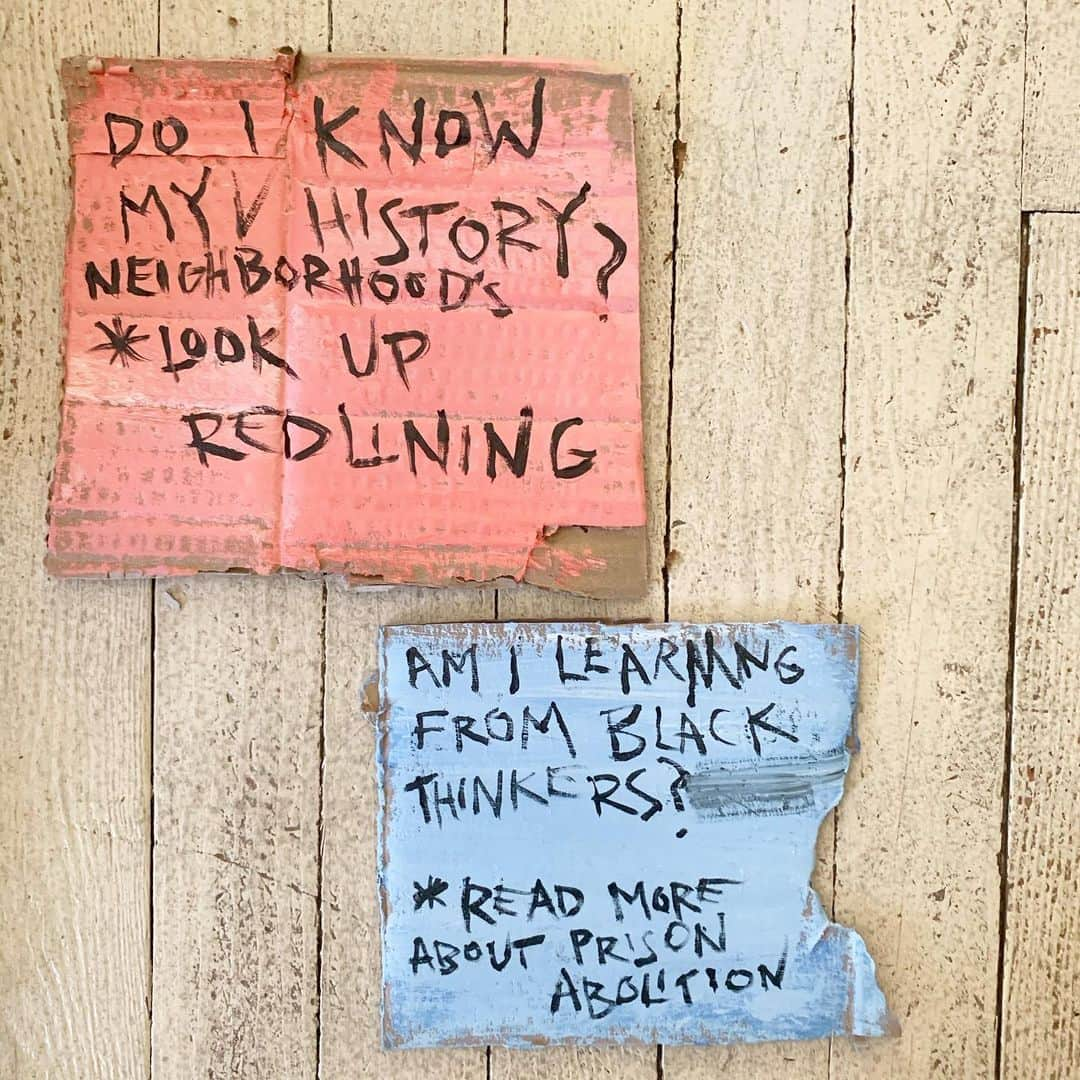 DO I KNOW
MY V HISTORY?
NEIGHBORHOOD'S
*LOOK UP
REDLINING
AM I LEARNING
FROM BLACK
THINKERS?
*READ MORE
ABOUT PRISON
ABOLITION